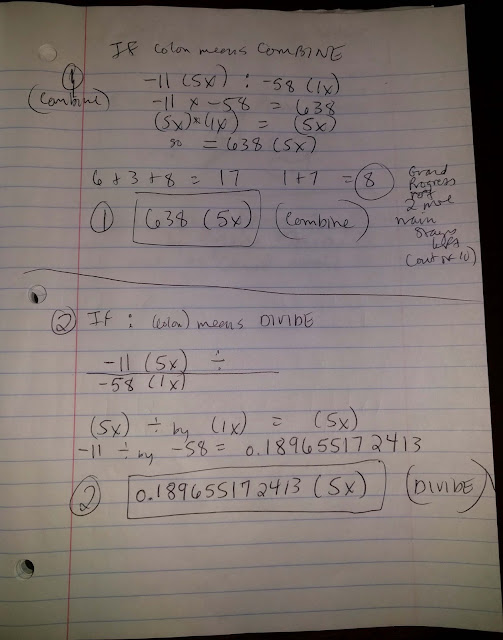 IF colon means COMBINE
①
(Combine)
-11 (5x) : -58 (1x)
-11 x -58 = 638
(5x) * (1x) = (5x)
so = 638 (5x)
6 + 3 + 8 = 17 1 + 7 = 8
Grand
Progress
2 more
main
steps
left
(out of 10)
① 638 (5x) (Combine)
② If : (colon) means DIVIDE
-11 (5x) ÷
-58 (1x)
(5x) ÷ by (1x) = (5x)
-11 ÷ by -58 = 0.189655172413
② 0.189655172413 (5x) (DIVIDE)